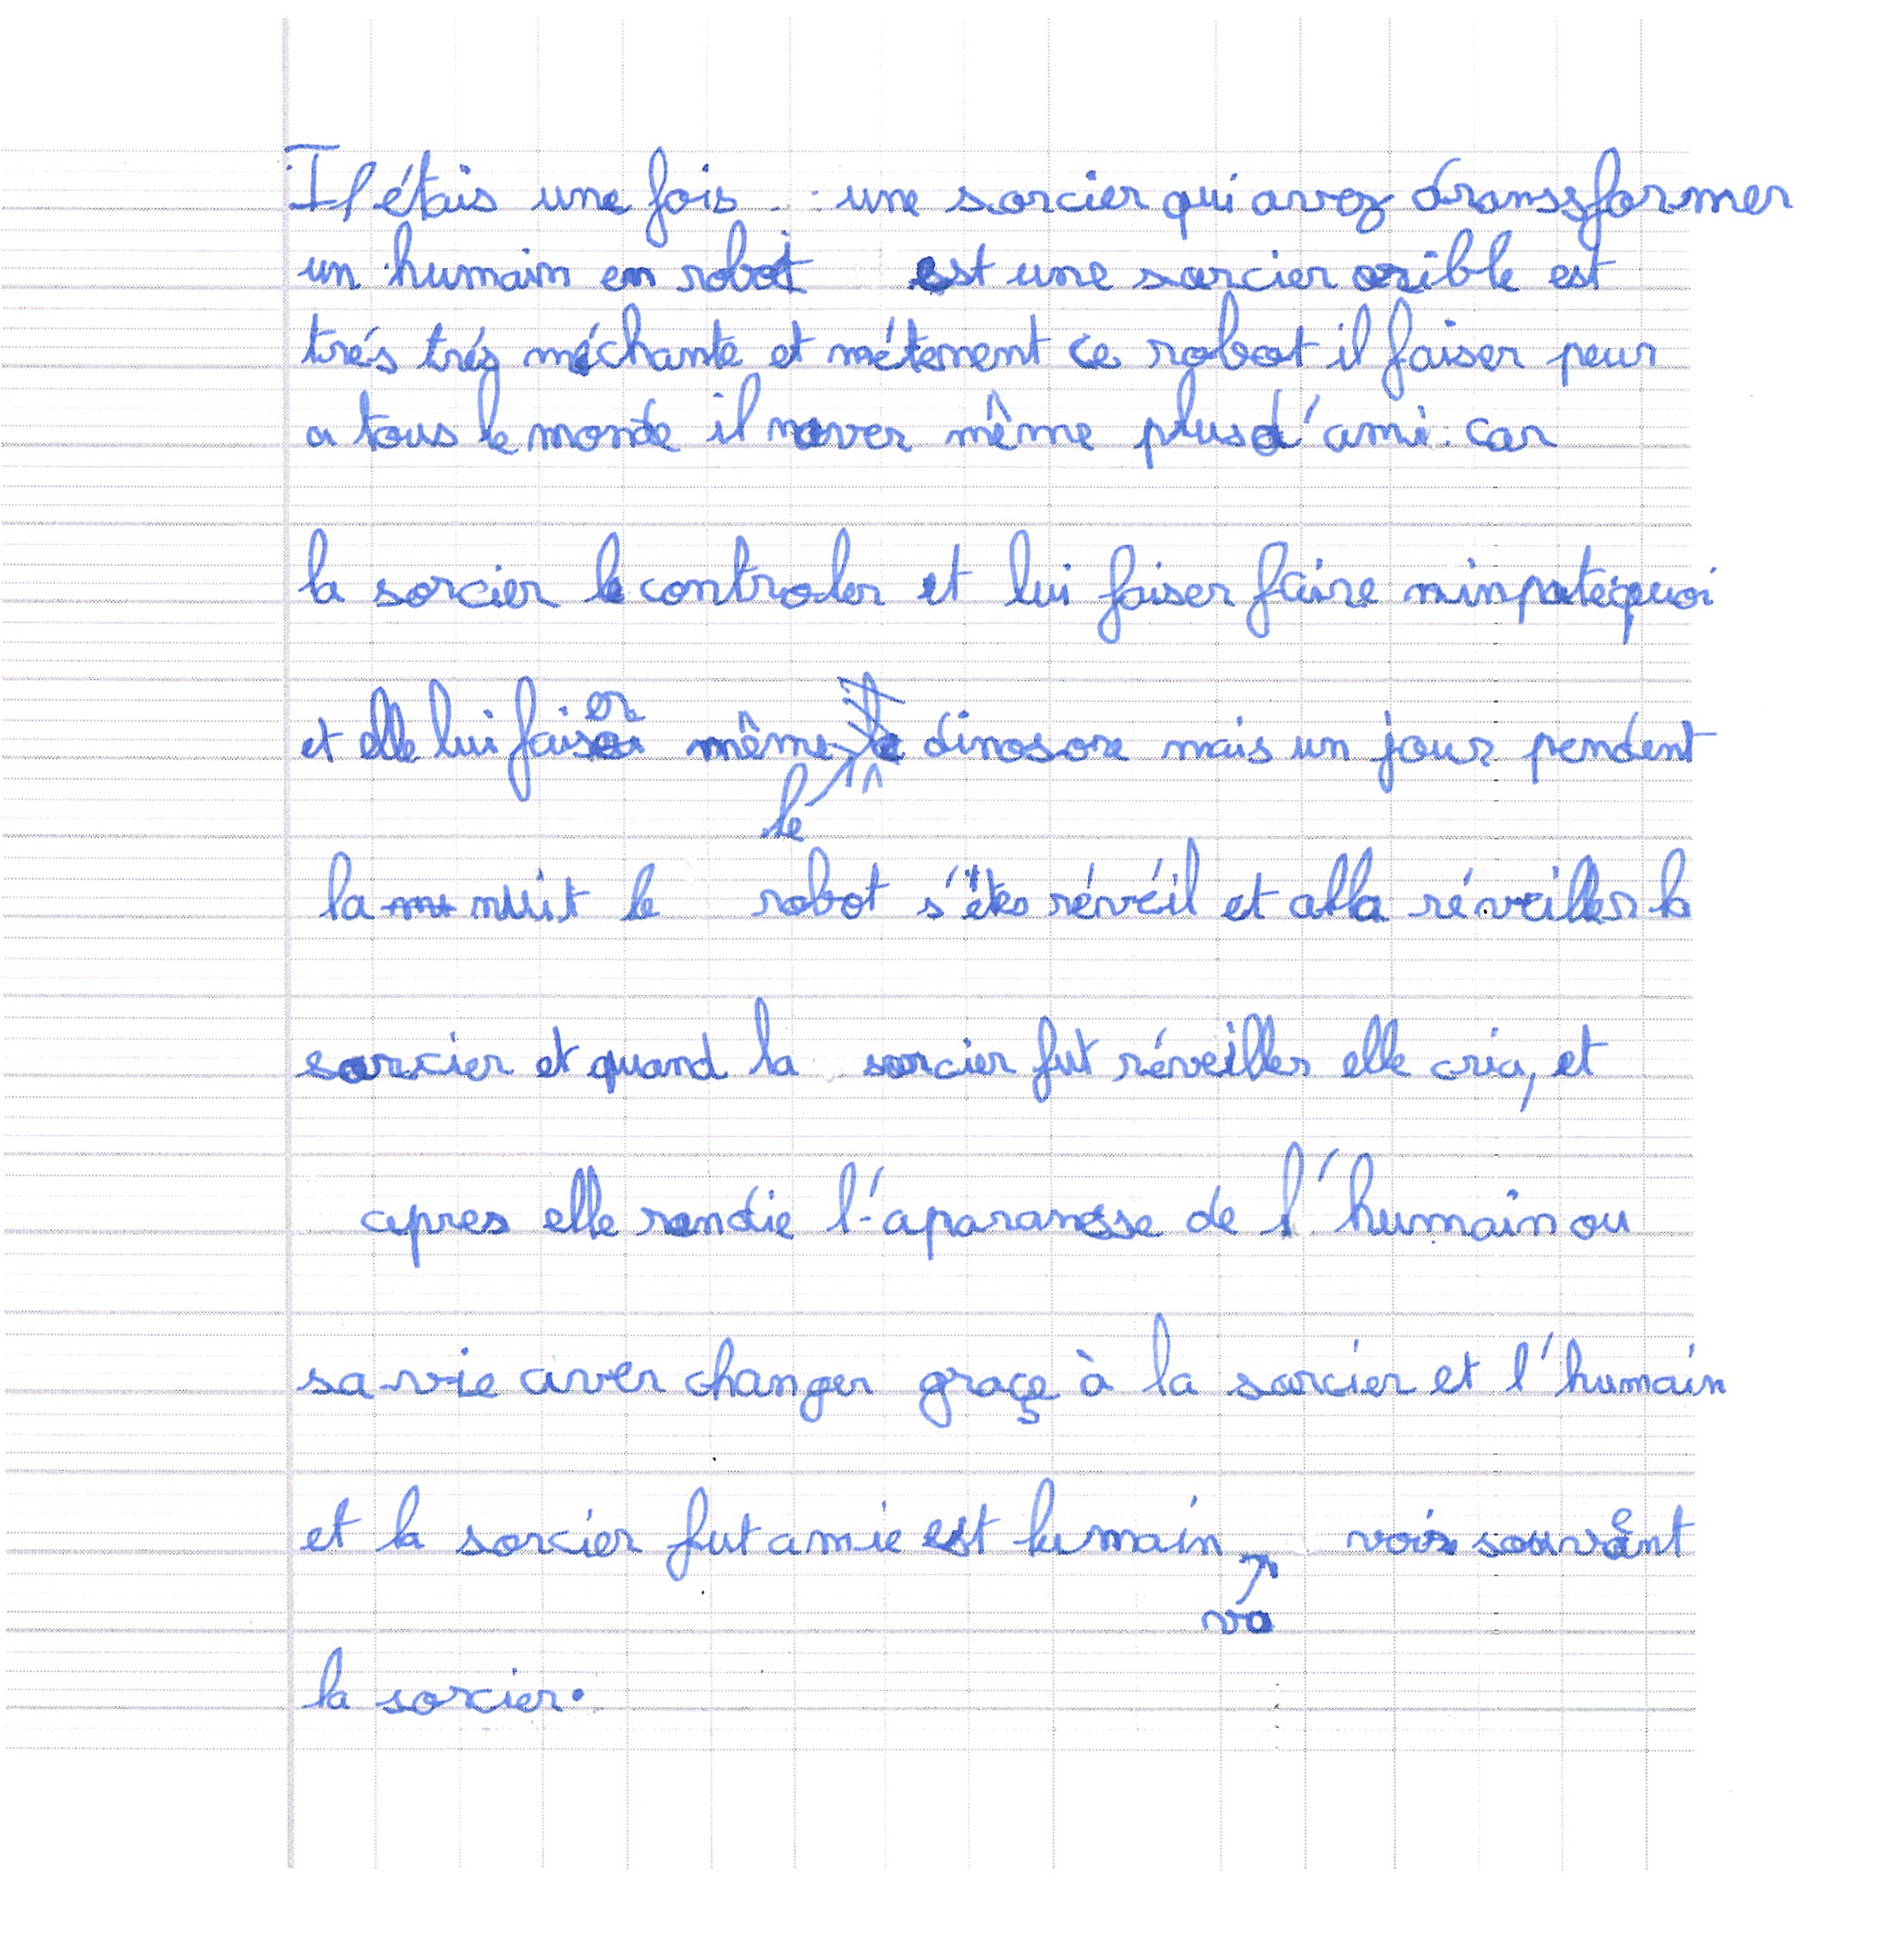 Il étais une fois : une sorcier qui avez transsformer
un humain en robot est une sorcier orible est
trés trés méchante et métenent ce robot il faiser peur
a tous le monde il naver même plus d'ami car
la sorcier le controler et lui faiser faire ninportequoi
et elle lui faiser même le dinosore mais un jour pendent
la nuit le robot s'étes révéil et alla réveiller la
sorcier et quand la sorcier fut réveiller elle cria, et
apres elle rendie l'aparansse de l'humain ou
sa vie aver changer graçe à la sorcier et l'humain
et la sorcier fut amie est lumain va voir souvent
la sorcier.